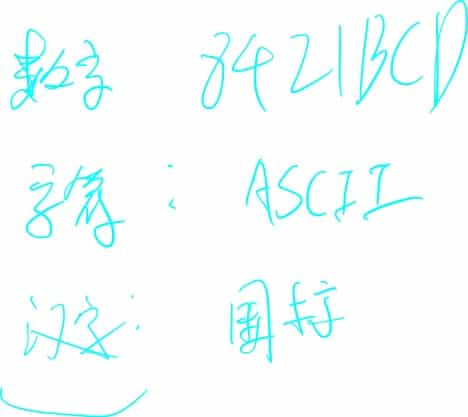 数字 8421BCD
字符: ASCII
汉字: 国标